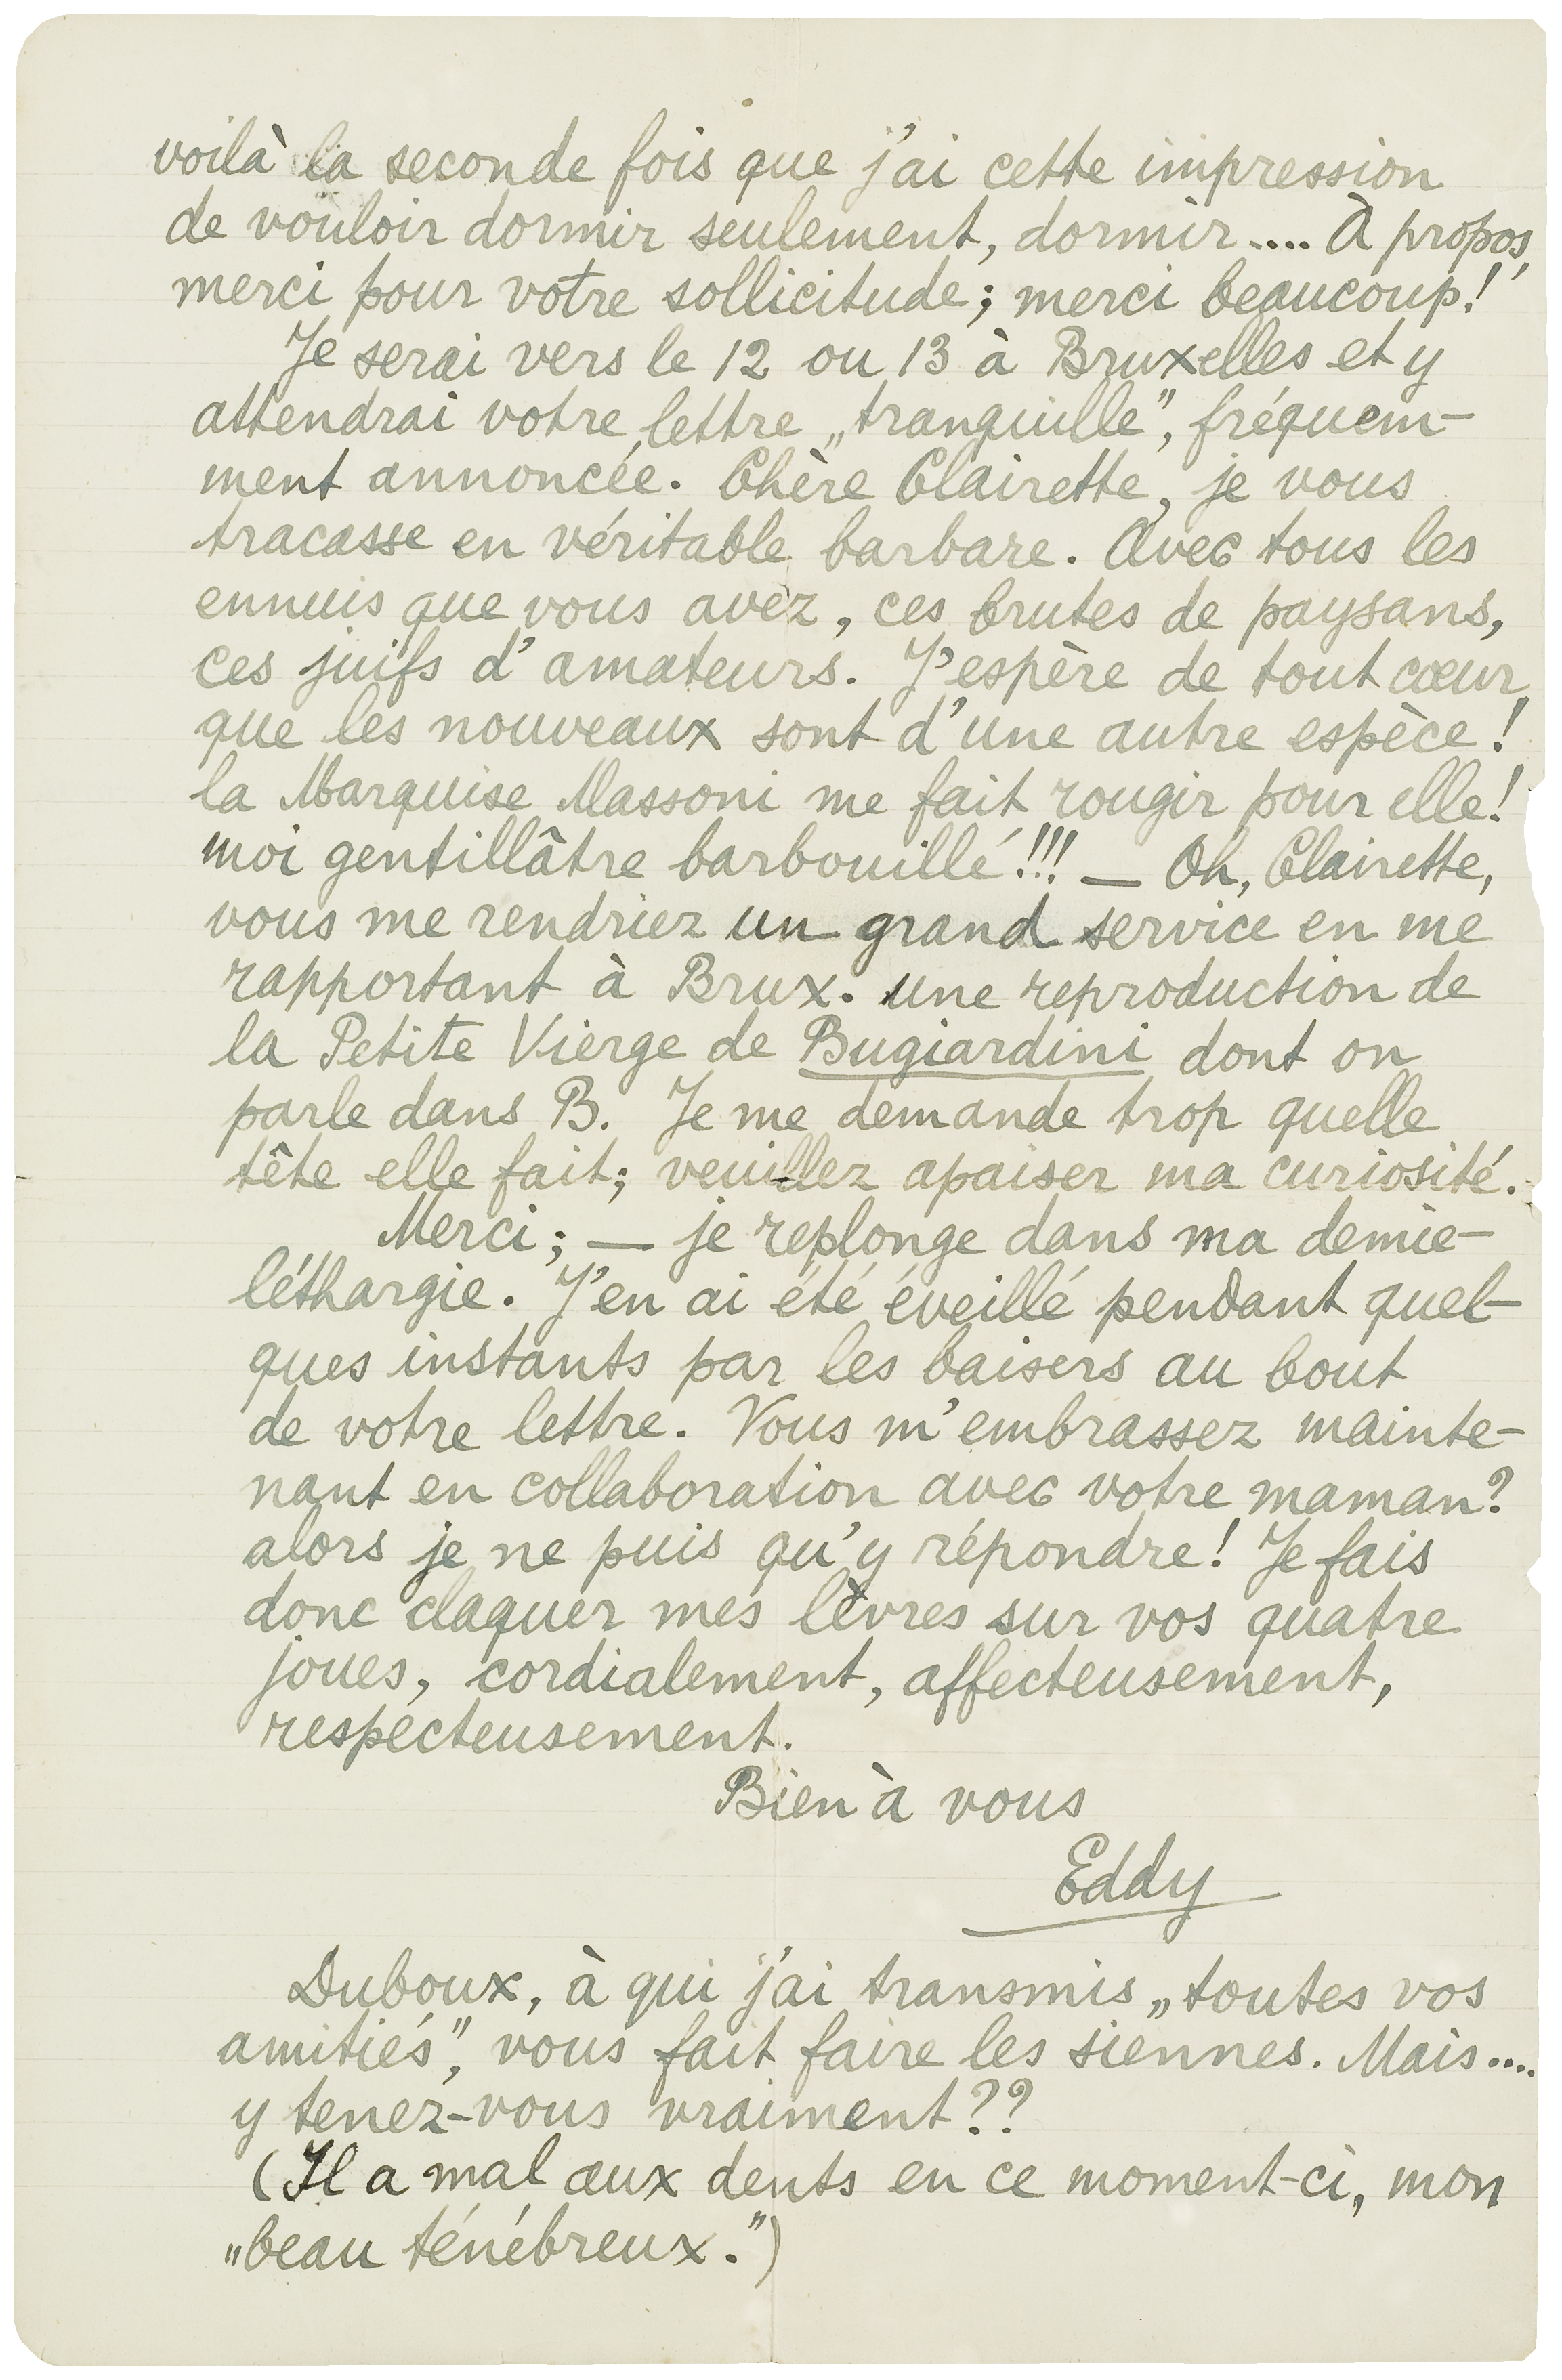 voilà la seconde fois que j'ai cette impression
de vouloir dormir seulement, dormir.... À propos,
merci pour votre sollicitude; merci beaucoup!
Je serai vers le 12 ou 13 à Bruxelles et y
attendrai votre lettre „tranquille”, fréquem-
ment annoncée. Chère Clairette, je vous
tracasse en véritable barbare. Avec tous les
ennuis que vous avez, ces brutes de paysans,
ces juifs d'amateurs. J'espère de tout cœur,
que les nouveaux sont d'une autre espèce!
la Marquise Massoni me fait rougir pour elle!
moi gentillâtre barbouillé!!! — Oh, Clairette,
vous me rendriez un grand service en me
rapportant à Brux. une reproduction de
la Petite Vierge de Bugiardini dont on
parle dans B. Je me demande trop quelle
tête elle fait; veuillez apaiser ma curiosité.
Merci; — je replonge dans ma demie-
léthargie. J'en ai été éveillé pendant quel-
ques instants par les baisers au bout
de votre lettre. Vous m'embrassez mainte-
nant en collaboration avec votre maman?
alors je ne puis qu'y répondre! Je fais
donc claquer mes lèvres sur vos quatre
joues, cordialement, affecteusement,
respecteusement.
Bien à vous
Eddy
Duboux, à qui j'ai transmis „toutes vos
amitiés”, vous fait faire les siennes. Mais....
y tenez-vous vraiment??
(Il a mal aux dents en ce moment-ci, mon
„beau ténébreux.”)